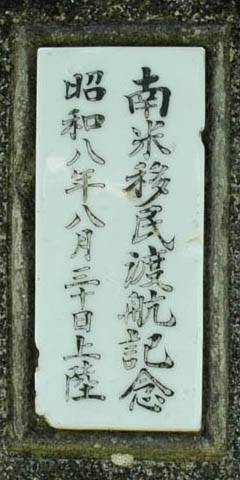 南米移民渡航記念
昭和八年八月三十日上陸